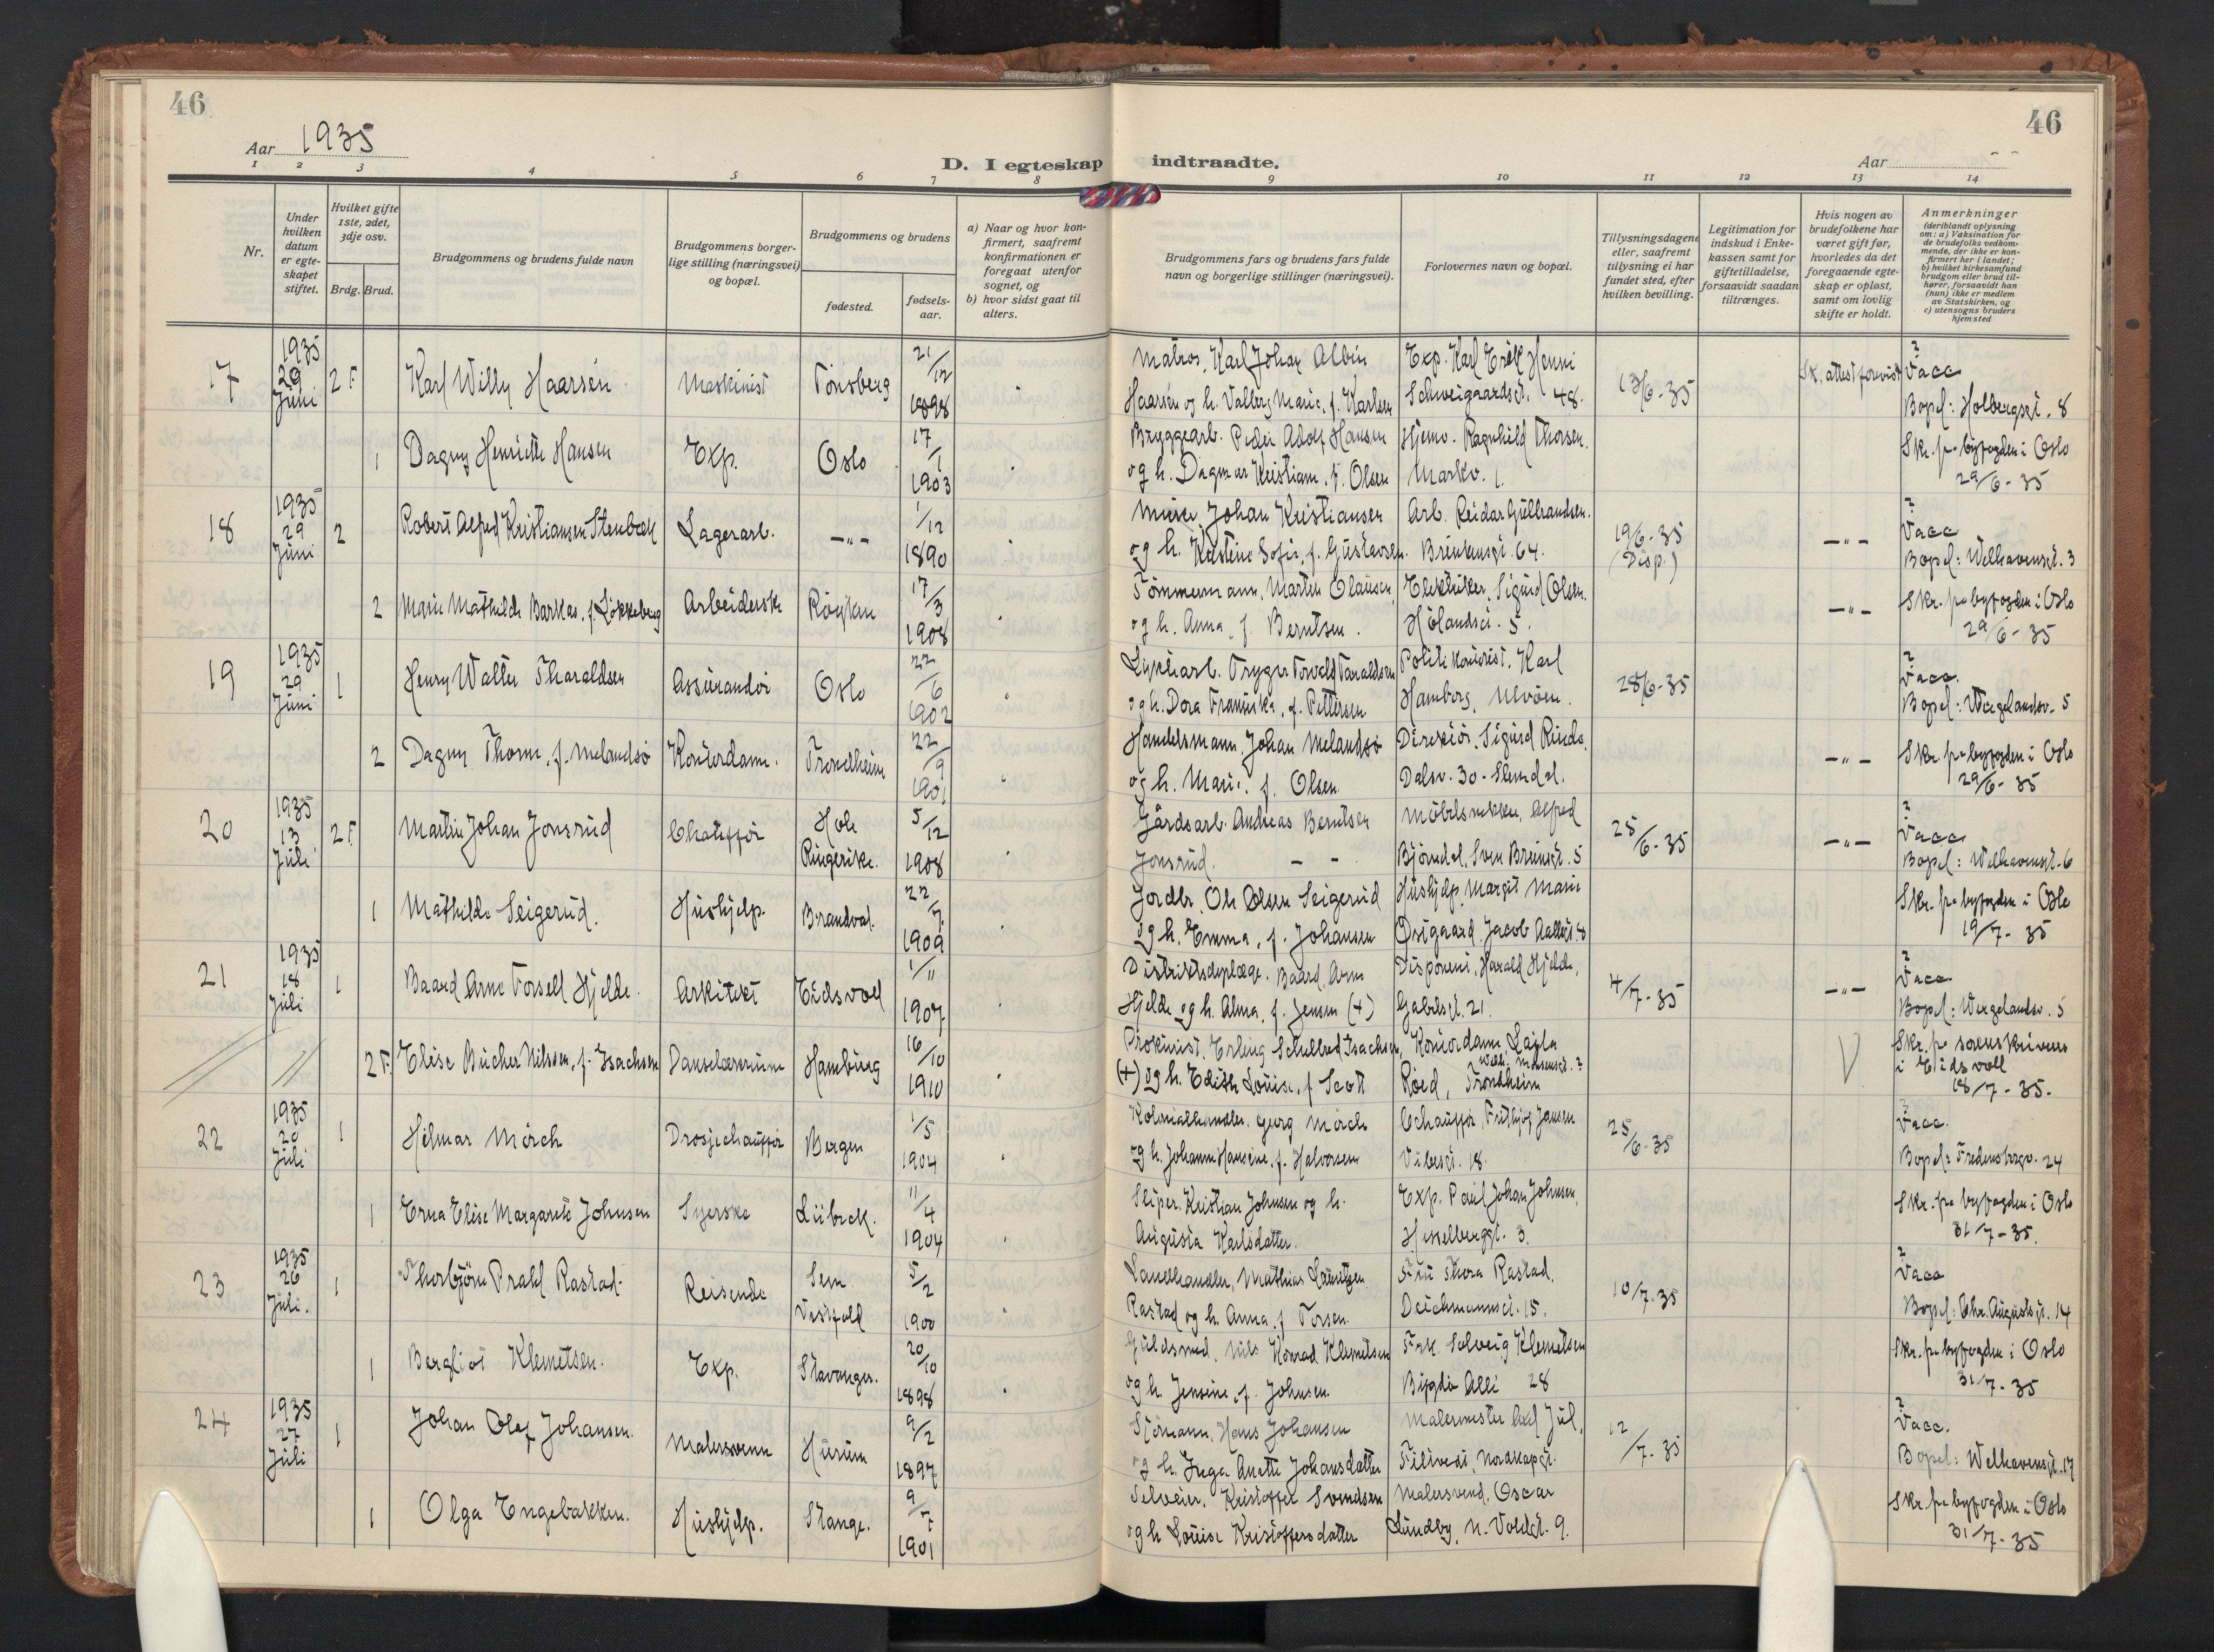 46
46
Aar 1935
D. I egteskap indtraadte.
Aar
1 2 3 4 5 6 7 8 9 10 11 12 13 14
Nr.
Under hvilken datum er egteskapet stiftet.
Hvilket gifte 1ste, 2det, 3dje osv.
Brdg. Brud.
Brudgommens og brudens fulde navn
Brudgommens borgerlige stilling (næringsvei) og bopæl.
Brudgommens og brudens
fødested.
fødselsaar.
a) Naar og hvor konfirmert, saafremt konfirmationen er foregaat utenfor sognet, og
b) hvor sidst gaat til alters.
Brudgommens fars og brudens fars fulde navn og borgerlige stillinger (næringsvei).
Forlovernes navn og bopæl.
Tillysningsdagene eller, saafremt tillysning ei har fundet sted, efter hvilken bevilling.
Legitimation for indskud i Enkekassen samt for giftetilladelse, forsaavidt saadan tiltrænges.
Hvis nogen av brudefolkene har været gift før, hvorledes da det foregaaende egteskap er opløst, samt om lovlig skifte er holdt.
Anmerkninger (deriblandt oplysning om: a) Vaksination for de brudefolks vedkommende, der ikke er konfirmert her i landet; b) hvilket kirkesamfund brudgom eller brud tilhører, forsaavidt han (hun) ikke er medlem av Statskirken, og c) utensogns bruders hjemsted
17 1935 29 Juni 2 F. Karl Willy Haarsén Maskinist Tönsberg 21/12 1898
Matros, Karl Johan Albin Haarsén og h. Valborg Marie, f. Karlsen
Exp. Karl Erik Henni Schweigaardsgt. 48.
13/6-35 Sk. attest forevist
2 Vacc Bopel: Holbergsgt. 8
1 Dagny Henriette Hansen Exp. Oslo 17/1 1903
Bryggearb. Peder Adolf Hansen og h. Dagmar Kristiane, f. Olsen
Hjemv. Ragnhild Thorsen. Markv. 1.
Skr. på byfogden i Oslo 29/6-35
18 1935 29 Juni 2 Robert Alfred Kristiansen Stenbæk Lagerarb. -"- 1/12 1890
Murer Johan Kristiansen og h. Kristine Sofie, f. Gustavsen.
Arb. Reidar Gulbrandsen. Brinkensgt. 64.
19/6-35 (Disp.) -"-
2 Vacc Bopel: Welhavensgt. 3
2 Marie Mathilde Barkas, f. Lökkeberg Arbeiderske Röyken 17/3 1908
Tömmermann, Martin Olausen, og h. Anna, f. Berntsen.
Elektriker, Sigurd Olsen. Hölandsgt. 5.
-"- Skr. på byfogden i Oslo 29/6-35
19 1935 29 Juni 1 Henry Walter Tharaldsen Assurandör Oslo 22/6 1902
Lyktearb. Trygve Torvald Taraldsen og h. Dora Franziska, f. Pettersen
Politikonst. Karl Hamborg, Ulvöen.
28/6-35
2 Vacc. Bopel: Wergelandsv. 5
2 Dagny Thorne, f. Melandsö Kontordame. Trondheim 22/9 1901
Handelsmann, Johan Melandsö og h. Marie, f. Olsen
Direktör, Sigurd Rinde. Dalsv. 30 - Slemdal.
-"- Skr. på byfogden i Oslo 29/6-35
20 1935 13 Juli 2 F. Martin Johan Jonsrud Chaufför Hole Ringerike. 5/12 1908
Gårdsarb. Andreas Berntsen Jonsrud. - -
Möbelsnekker, Alfred Björndal, Sven Brunsgt. 5
25/6-35 -"-
2 Vacc Bopel: Welhavensgt. 6
1 Mathilde Seigerud. Hushjelp. Brandval. 22/7 1909
Jordbr. Ole Olsen Seigerud og h. Emma, f. Johansen
Hushjelp, Margit Marie Östgaard, Jacob Aallsgt. 8
Skr. på byfogden i Oslo 19/7-35
21 1935 18 Juli 1 Baard Arne Torsell Hjelde. Arkitekt Eidsvoll 1/11 1907
Distriktsdyrlæge, Baard Arne Hjelde og h. Alma, f. Jensen (+)
Disponent, Harald Hjelde, Gabelsgt. 21.
4/7-35 -"-
2 Vacc Bopel: Wergelandsv. 5
2 F. Elise Bücher Nilssen, f. Isachsen Danselærerinne Hamburg 16/10 1910
Prokurist, Erling Schelbred Isachsen, (+) og h. Edith Louise, f. Scott
Kontordame Laila Röed, Trondheim
Skr. på sorenskriveren i Eidsvoll 18/7-35.
22 1935 20 Juli 1 Hilmar Mörch Drosjechaufför Bergen 1/5 1904
Kolonialhandler, Georg Mörch og h. Johanne Hansine, f. Halvorsen
Chauffør, Fridthjof Jansen Vibesgt. 18.
25/6-35
Vacc. Bopel: Fredensborgv. 24
1 Erna Elise Margarete Johnsen Syerske Lübeck. 11/4 1904
Sliper. Kristian Johnsen og h. Augusta Karlsdatter.
Exp. Paul Johan Johnsen, Hesselbergsgt. 3.
Skr. på byfogden i Oslo 31/7-35.
23 1935 26 Juli. 1 Thorbjörn Prahl Rastad. Reisende Sem Vestfold 5/2 1900
Landhandler, Mathias Lauritzen Rastad og h. Anna, f. Torsen.
Fru Thora Rastad, Deichmannsgt. 15.
10/7-35
2 Vacc Bopel: Chr. Augustsgt. 14
1 Bergliot Klemetsen. Exp. Stavanger. 20/10 1898
Guldsmed, Nils Konrad Klemetsen og h. Jensine, f. Johnsen.
Frk. Solveig Klemetsen Bygdö Allé 28
Skr. på byfogden i Oslo 31/7-35
24 1935 27 Juli 1 Johan Olaf Johansen. Malersvenn Hurum 9/2 1897
Sjömann, Hans Johansen og h. Inga Anette Johansdatter
Malermester Axel Jul, Filtvedt, Nordkapgt.
12/7-35
2 Vacc. Bopel: Welhavensgt. 17
1 Olga Engebakken. Hushjelp. Stange. 9/7 1901
Selveier, Kristoffer Svendsen og h Louise Kristoffersdatter
Malersvend, Oscar Lundby, N. Voldgt. 9.
Skr. på byfogden i Oslo 31/7-35